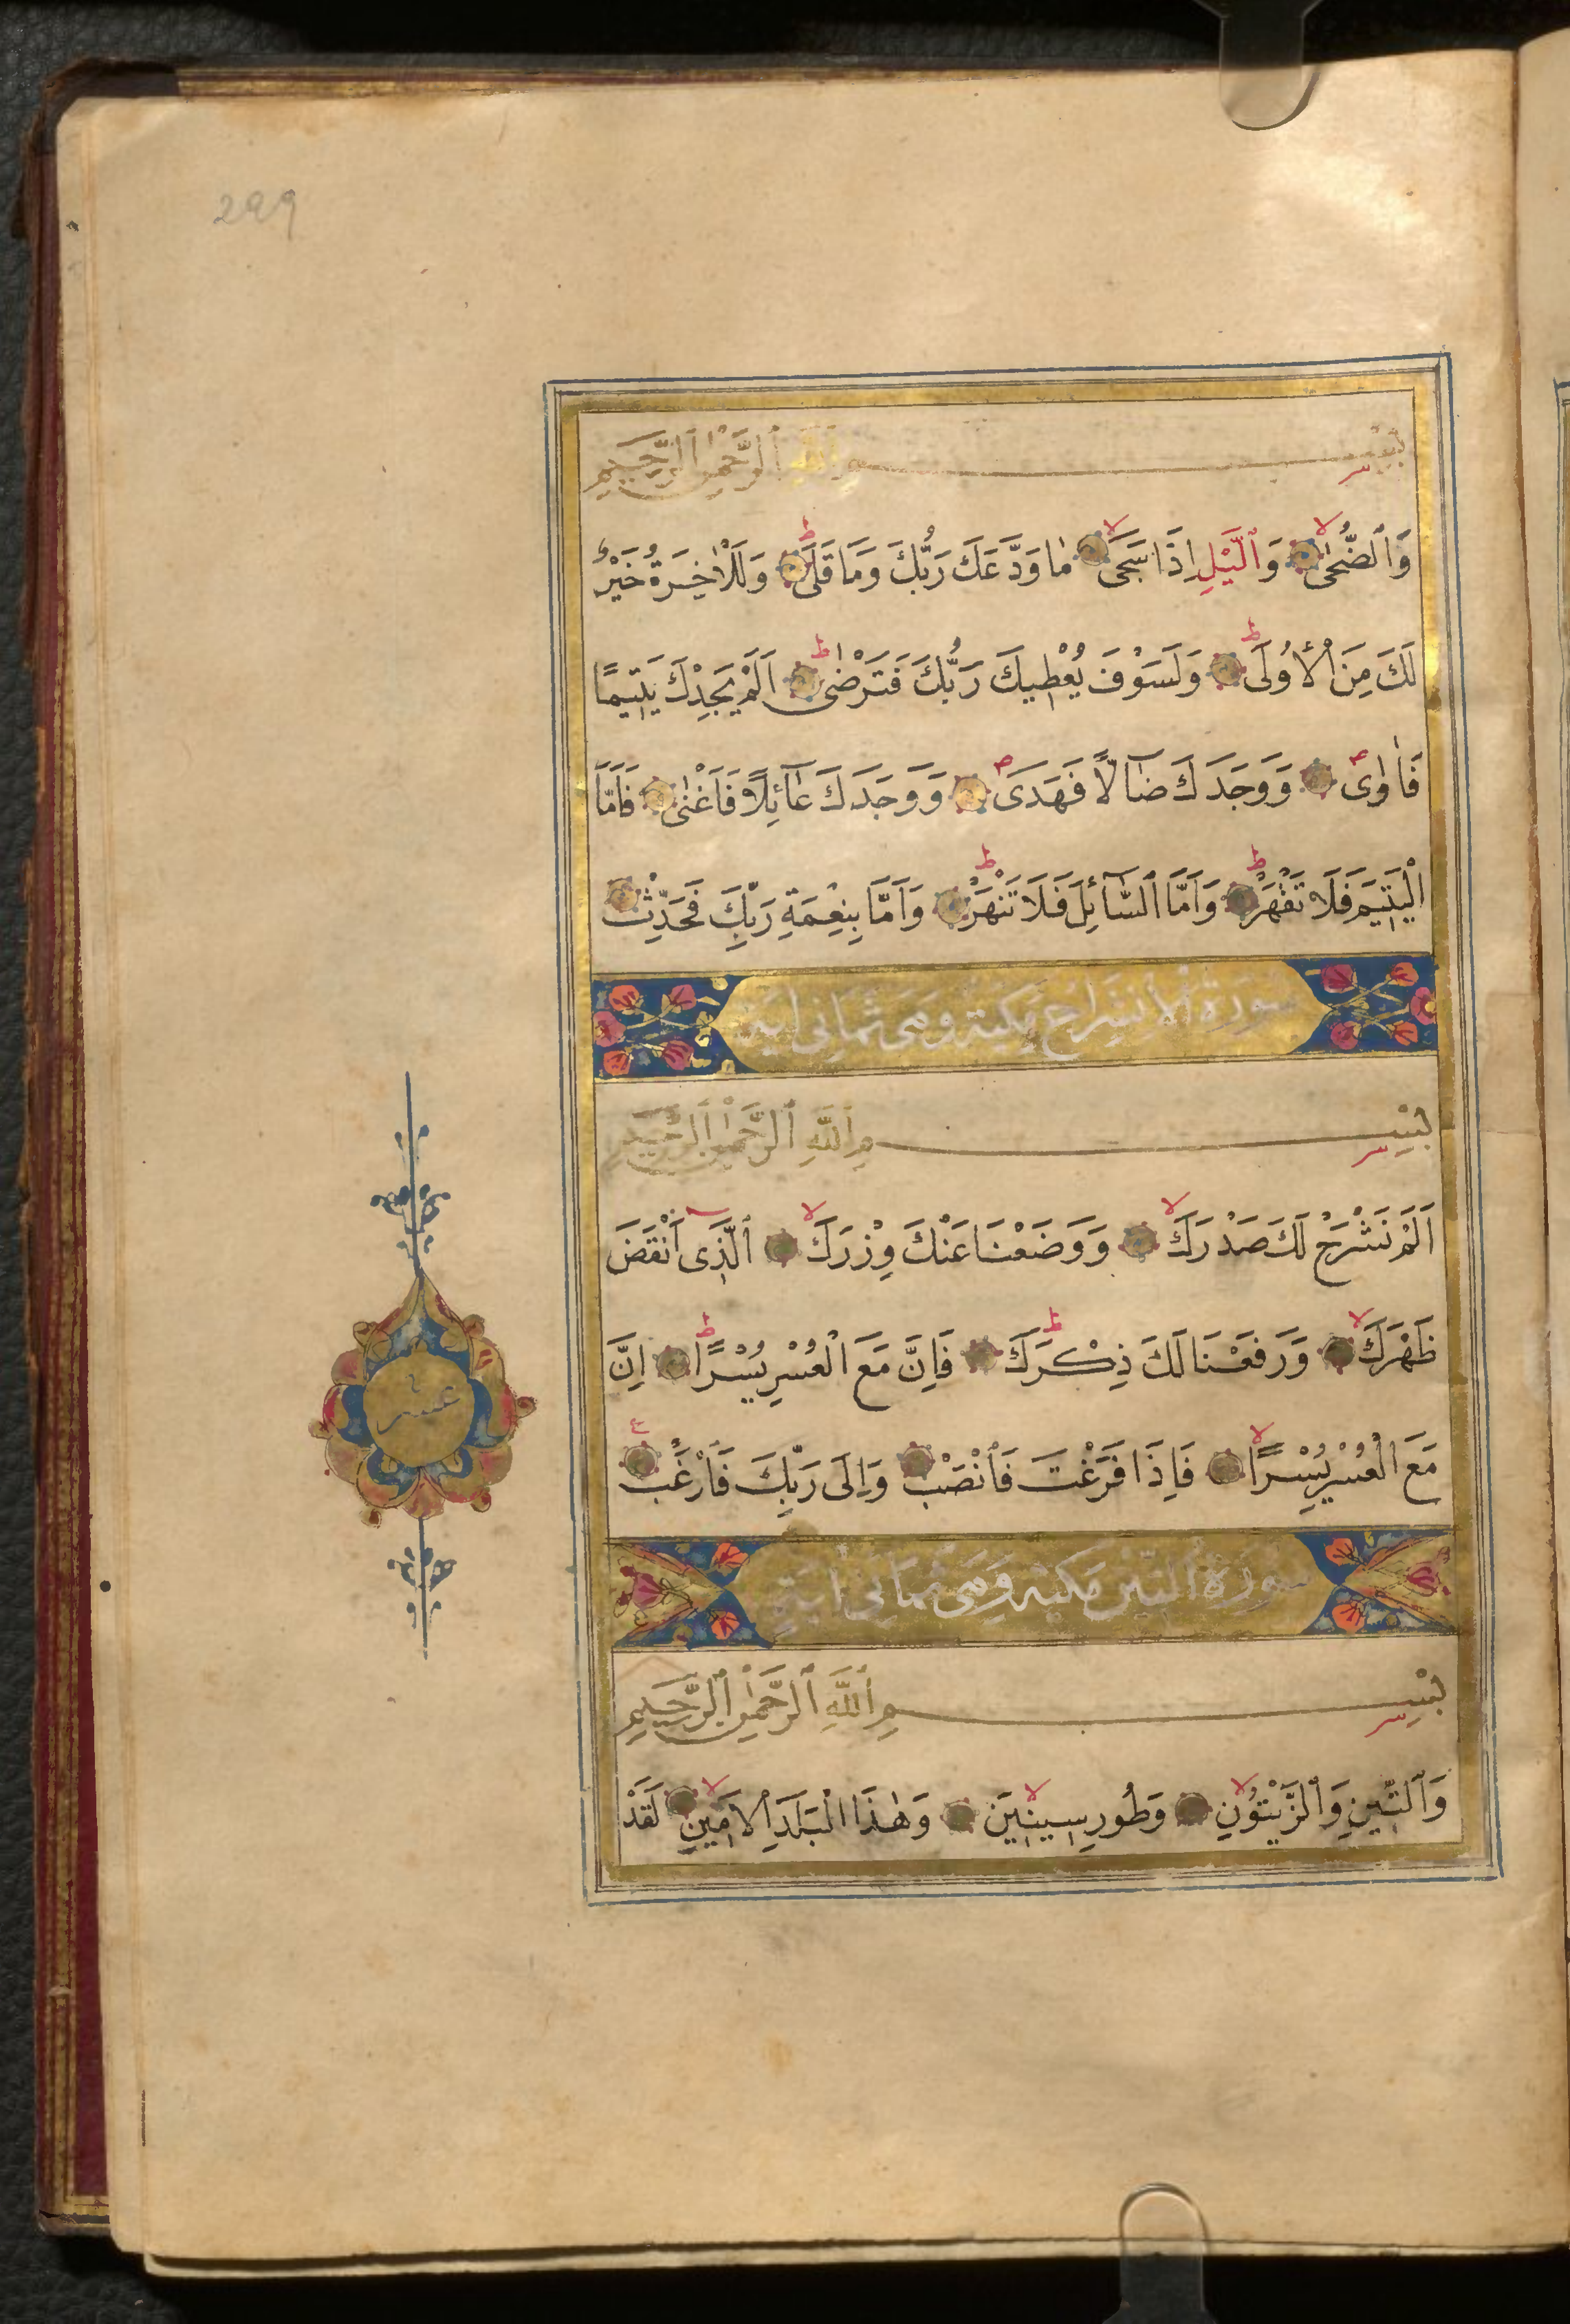 299
بِسْمِ ٱللَّهِ ٱلرَّحْمٰنِ ٱلرَّحِيمِ
وَٱلضُّحٰى وَٱلَّيْلِ اِذَا سَجَى مٰا وَدَّعَكَ رَبُّكَ وَمَا قَلَى وَلَلْاٰخِرَةُ خَيْرٌ
لَكَ مِنَ الْأُولَى وَلَسَوْفَ يُعْطِيكَ رَبُّكَ فَتَرْضٰى اَلَمْ يَجِدْكَ يَتِيمًا
فَاٰوٰى وَوَجَدَكَ ضٰٓالًّا فَهَدَى وَوَجَدَكَ عٰٓائِلًا فَاَغْنٰى فَاَمَّا
الْيَتِيمَ فَلَا تَقْهَرْ وَاَمَّا ٱلسَّٓائِلَ فَلَا تَنْهَرْ وَاَمَّا بِنِعْمَةِ رَبِّكَ فَحَدِّثْ
سورة الانشراح مكية وهى ثمانى اية
بِسْمِ ٱللَّهِ ٱلرَّحْمٰنِ ٱلرَّحِيمِ
اَلَمْ نَشْرَحْ لَكَ صَدْرَكَ وَوَضَعْنَا عَنْكَ وِزْرَكَ ٱلَّذِى اَنْقَضَ
ظَهْرَكَ وَرَفَعْنَا لَكَ ذِكْرَكَ فَاِنَّ مَعَ الْعُسْرِ يُسْرًا اِنَّ
عشر
مَعَ الْعُسْرِ يُسْرًا فَاِذَا فَرَغْتَ فَٱنْصَبْ وَاِلَى رَبِّكَ فَٱرْغَبْ
سورة التين مكية وهى ثمانى اية
بِسْمِ ٱللَّهِ ٱلرَّحْمٰنِ ٱلرَّحِيمِ
وَٱلتِّينِ وَٱلزَّيْتُونِ وَطُورِ سِينِينَ وَهٰذَا الْبَلَدِ ٱلْاَمِينِ لَقَدْ